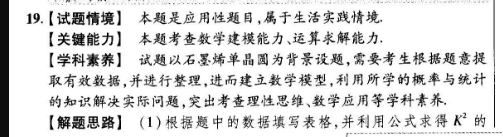 19.【试题情境】 本题是应用性题目,属于生活实践情境.
【关键能力】 本题考查数学建模能力、运算求解能力.
【学科素养】 试题以石墨烯单晶圆为背景设题,需要考生根据题意提
取有效数据,并进行整理,进而建立数学模型,利用所学的概率与统计
的知识解决实际问题,突出考查理性思维、数学应用等学科素养.
【解题思路】 (1)根据题中的数据填写表格,并利用公式求得 K² 的